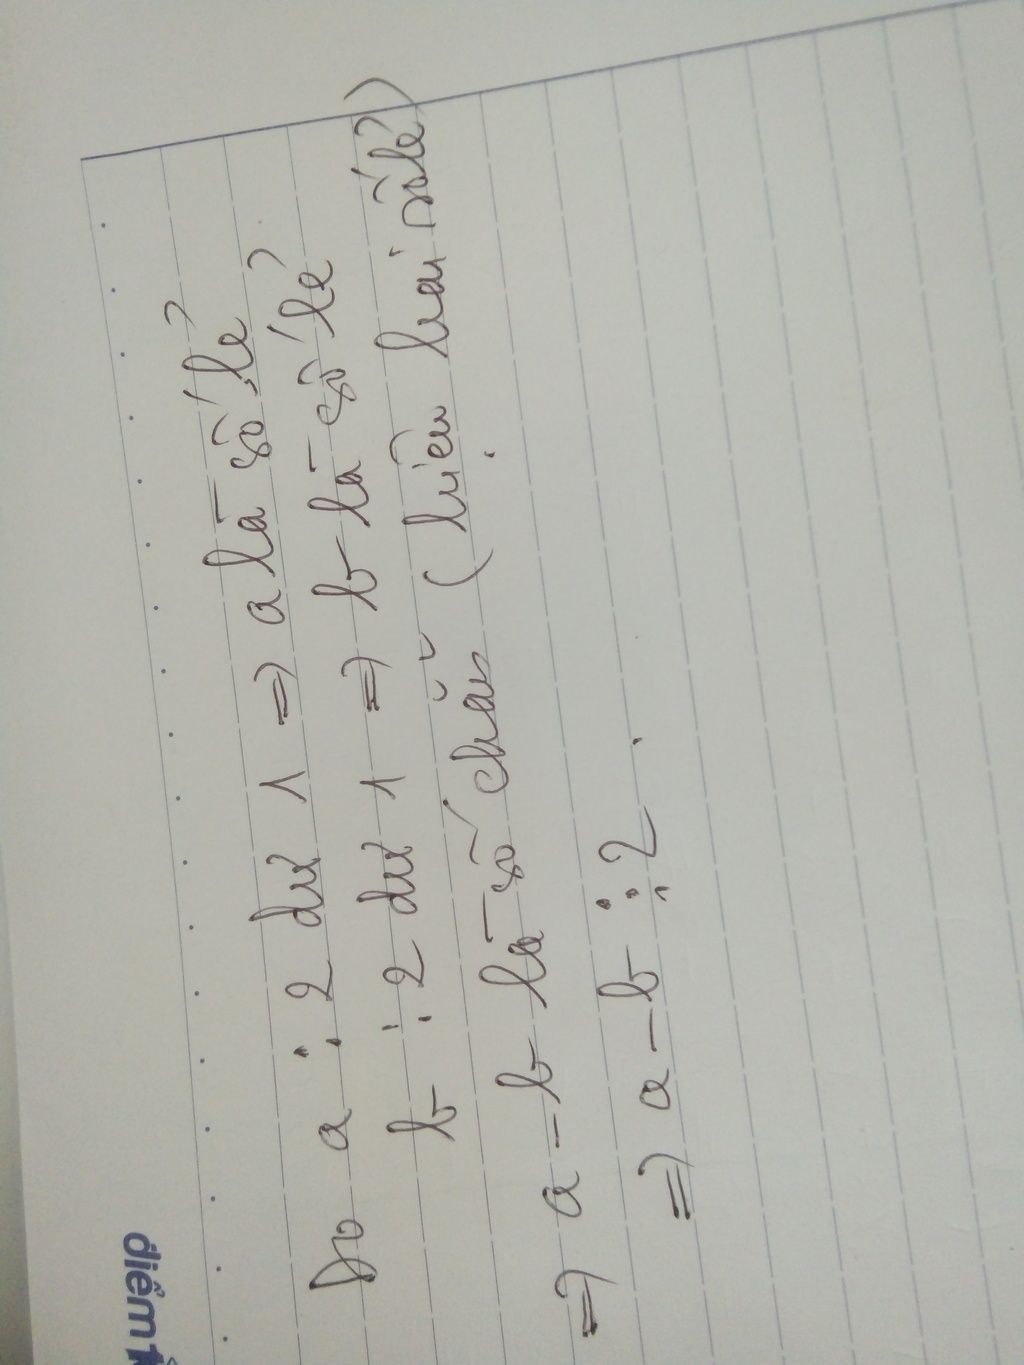 Do a : 2 dư 1 => a là số lẻ
b : 2 dư 1 => b là số lẻ
=> a - b là số chẵn (hiệu hai số lẻ)
=> a - b ⋮ 2.
điểm 1